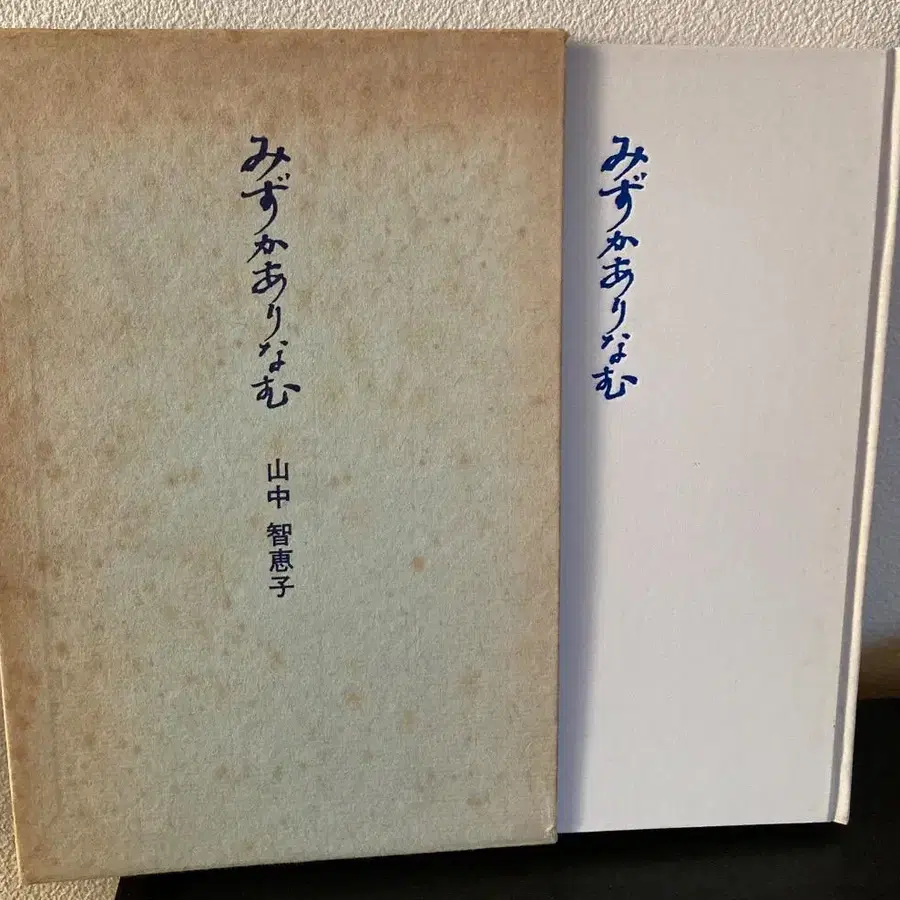 みずかありなむ
山中智恵子
みずかありなむ